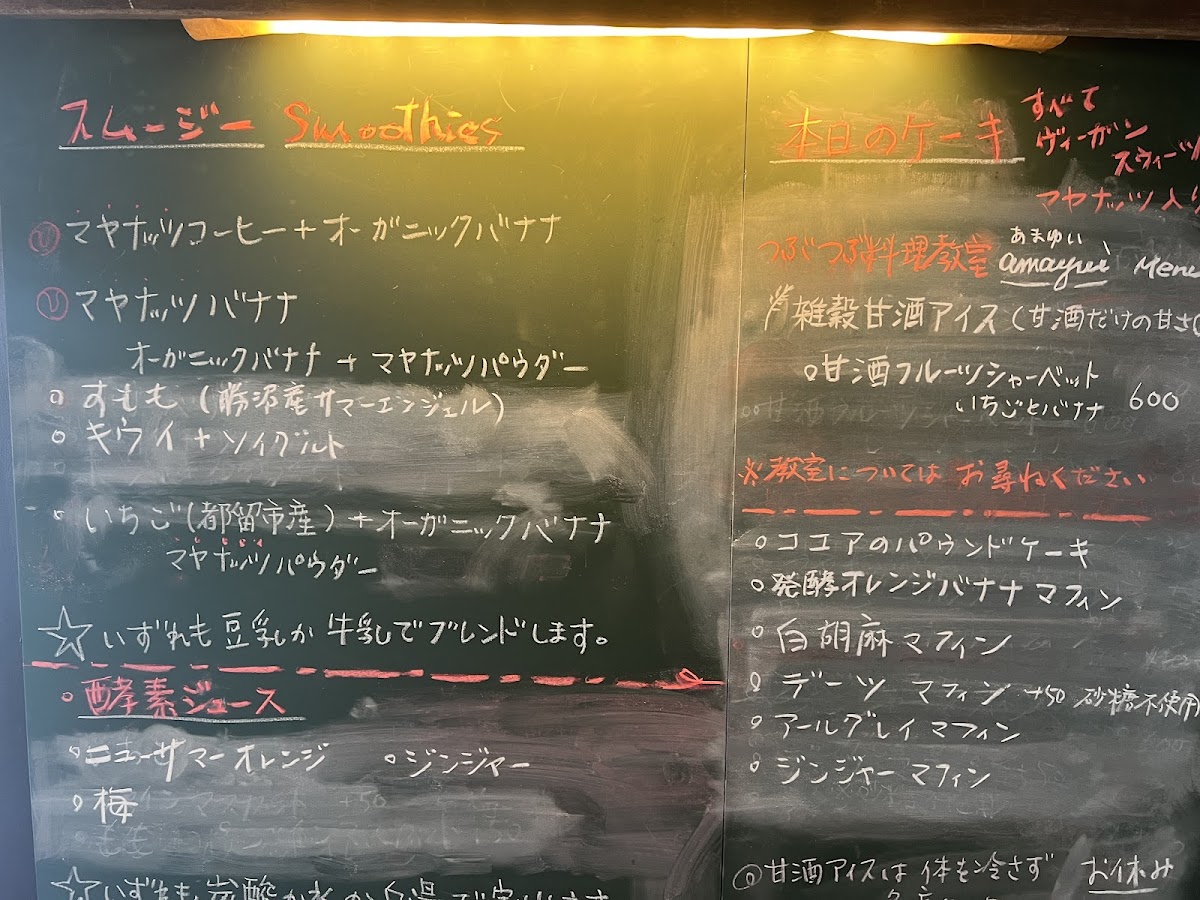 スムージー Smoothies
Ⓥ マヤナッツコーヒー＋オーガニックバナナ
Ⓥ マヤナッツバナナ
オーガニックバナナ＋マヤナッツパウダー
○ すもも（勝沼産サマーエンジェル）
○ キウイ＋ソイグルト
○ いちご（都留市産）＋オーガニックバナナ
マヤナッツパウダー
☆ いずれも豆乳か牛乳でブレンドします。
○ 酵素ジュース
○ニューサマーオレンジ ○ジンジャー
○梅
☆いずれも炭酸か水か白湯で
本日のケーキ
すべて
ヴィーガン
スウィーツ
マヤナッツ入り
つぶつぶ料理教室 amayui Menu
あまゆい
雑穀甘酒アイス（甘酒だけの甘さ
○甘酒フルーツシャーベット
いちごとバナナ 600
※教室については お尋ねください
○ココアのパウンドケーキ
○発酵オレンジバナナマフィン
○白胡麻マフィン
○デーツ マフィン +50 砂糖不使用
○アールグレイマフィン
○ジンジャーマフィン
◎甘酒アイスは 体を冷さず お休み